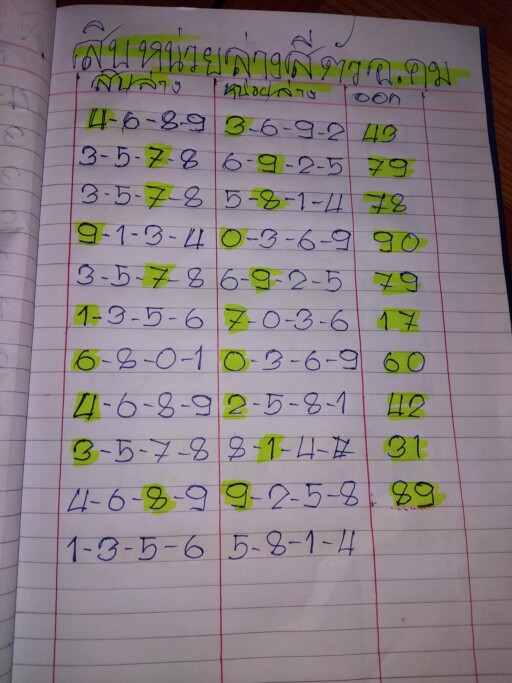 สิบหน่วยล่างสี่ตัวอ.คม
สิบล่าง หน่วยล่าง ออก
4-6-8-9 3-6-9-2 43
3-5-7-8 6-9-2-5 79
3-5-7-8 5-8-1-4 78
9-1-3-4 0-3-6-9 90
3-5-7-8 6-9-2-5 79
1-3-5-6 7-0-3-6 17
6-8-0-1 0-3-6-9 60
4-6-8-9 2-5-8-1 42
3-5-7-8 8-1-4-7 31
4-6-8-9 9-2-5-8 89
1-3-5-6 5-8-1-4